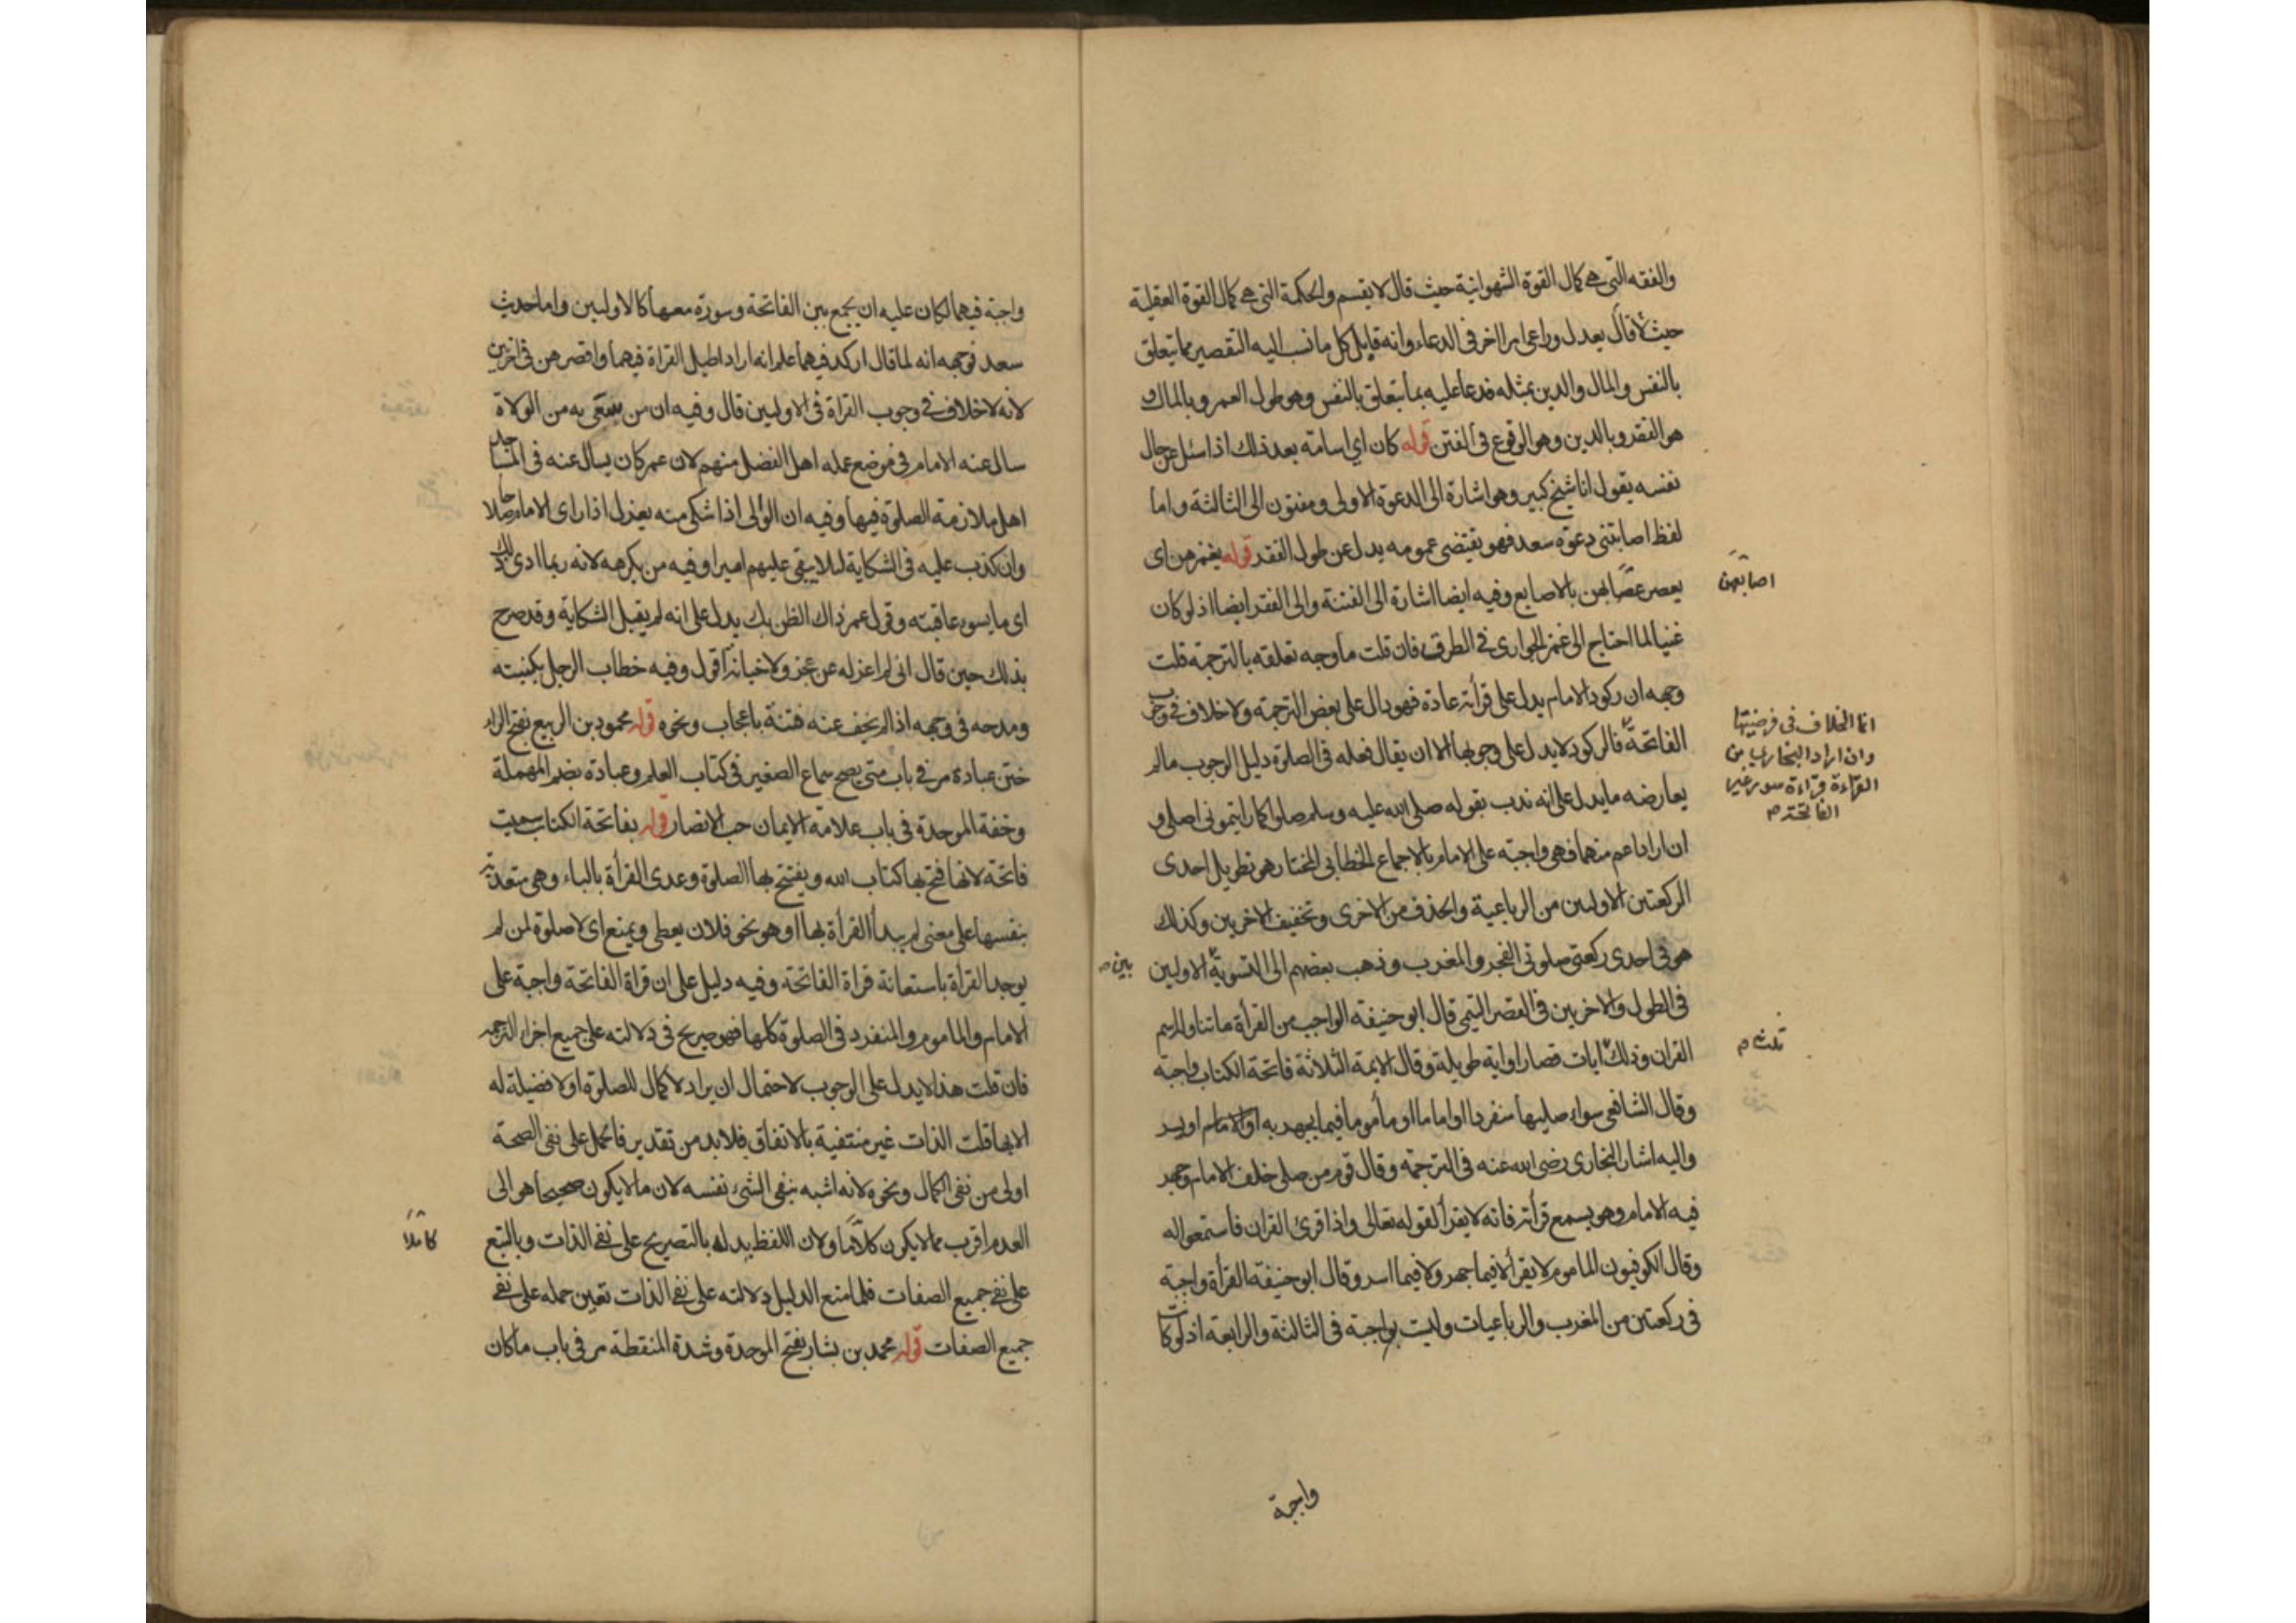 والفقه التي هي كمال القوة الشهوانية حيث قال لا يقسم والحكمة التي هي كمال القوة العقلية
حيث لا قال يعدل وراعى امرا اخر في الدعاء وانه قابل كل ما نسب اليه التقصير مما يتعلق
بالنفس والمال والدين بمثله فدعا عليه بما يتعلق بالنفس وهو طول العمر وبالمال و
هو الفقر وبالدين وهو الوقوع في الفتن قوله كان اي اسامة بعد ذلك اذا سئل عن حال
نفسه يقول انا شيخ كبير وهو اشارة الى الدعوة الاولى ومفتون الى الثالثة واما
لفظ اصابتني دعوة سعد فهو يقتضي عمومه يدل عن طول الفقد قوله يغمزهن اي
يعصر عصابهن بالاصابع وفيه ايضا اشارة الى الفتنة والى الفقر ايضا اذ لو كان
اصابعهن
غنيا لما احتاج الى غمز الجواري في الطرق فان قلت ما وجه تعلقه بالترجمة قلت
وجهه ان ركود الامام يدل على قرأته عادة فهو دال على بعض الترجمة ولا خلاف في وجوب
انما الخلاف في فرضيتها
وان اراد البخاري من
القراءة قراءة سور غير
الفاتحة م
الفاتحة فالركود لا يدل على وجوبها الا ان يقال فعله في الصلوة دليل الوجوب ما لم
يعارضه ما يدل على انه ندب بقوله صلى الله عليه وسلم صلوا كما رايتموني اصلي و
ان اراد اعم منهما فهي واجبة على الامام بالاجماع الخطابي المختار هو تطويل احدى
الركعتين الاوليين من الرباعية والحذف من الاخرى وتخفيف الاخريين وكذلك
هو في احدى ركعتي صلوتي الفجر والمغرب وذهب بعضهم الى التسوية الاوليين
بين م
في الطول والاخريين في القصر التيمي قال ابو حنيفة الواجب من القرأة ما تناوله اسم
القران وذلك ايات قصار او اية طويلة وقال الايمة الثلاثة فاتحة الكتاب واجبة
ثلث م
وقال الشافعي سواء صليها منفردا او اماما او مأموما فيما يجهر به او الامام او يسر
واليه اشار البخاري رضي الله عنه في الترجمة وقال قوم من صلى خلف الامام وجهر
فيه الامام وهو يسمع قرأته فانه لا يقرأ لقوله تعالى واذا قرئ القران فاستمعوا له
وقال الكوفيون الماموم لا يقرأ لا فيما جهر ولا فيما اسر وقال ابو حنيفة القرأة واجبة
في ركعتين من المغرب والرباعيات وليست بواجبة في الثالثة والرابعة اذ لو كانت
واجبة
واجبة فيهما لكان عليه ان يجمع بين الفاتحة وسورة معها كالاوليين واما حديث
سعد فوجهه انه لما قال اركد فيهما علم انه اراد اطيل القراة فيهما واقصرهن في اخريين
لانه لا خلاف في وجوب القراة في الاوليين قال وفيه ان من سعى به من الولاة
سال عنه الامام في موضع عمله اهل الفضل منهم لان عمر كان يسأل عنه في المساجد
اهل ملازمة الصلوة فيها وفيه ان الوالي اذا شكي منه يعزل اذا راى الامام صلاحا
وان كذب عليه في الشكاية لئلا يبقى عليهم اميرا وفيه من يكرهه لانه ربما ادى ذلك
اى ما يسوء عاقبته وقول عمر ذاك الظن بك يدل على انه لم يقبل الشكاية وقد صرح
بذلك حين قال اني لم اعزله عن عجز ولا خيانة اقول وفيه خطاب الرجل بكنيته
ومدحه في وجهه اذا لم يخف عنه فتنة باعجاب ونحوه قوله محمود بن الربيع بفتح الراء
ختن عبادة مر في باب متى يصح سماع الصغير في كتاب العلم وعبادة بضم المهملة
وخفة الموحدة في باب علامة الايمان حب الانصار قوله بفاتحة الكتاب سميت
فاتحة لانها فتح بها كتاب الله ويفتتح بها الصلوة وعدى القرأة بالباء وهي متعدية
بنفسها على معنى لم يبدأ القرأة بها او هو نحو فلان يعطي ويمنع اى لا صلوة لمن لم
يوجد القرأة باستعانة قراة الفاتحة وفيه دليل على ان قراة الفاتحة واجبة على
الامام والماموم والمنفرد في الصلوة كلها فهو صريح في دلالته على جميع اجزاء الترجمة
فان قلت هذا لا يدل على الوجوب لاحتمال ان يراد لا كمال للصلوة او لا فضيلة له
الا بها قلت الذات غير منتفية بالاتفاق فلا بد من تقدير فالحمل على نفي الصحة
اولى من نفي الكمال ونحوه لانه اشبه بنفي الشئ نفسه لان ما لا يكون صحيحا هو الى
العدم اقرب مما لا يكون كلاما ولان اللفظ يدل له بالتصريح على نفي الذات وبالتبع
كاملا
على نفي جميع الصفات فلما منع الدليل دلالته على نفي الذات تعين حمله على نفي
جميع الصفات قوله محمد بن بشار بفتح الموحدة وشدة المنقطة مر في باب ما كان